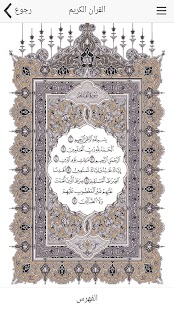 رجوع
القران الكريم
بِسْمِ اللَّهِ الرَّحْمَٰنِ الرَّحِيمِ ۝
الْحَمْدُ لِلَّهِ رَبِّ الْعَالَمِينَ ۝
الرَّحْمَٰنِ الرَّحِيمِ ۝ مَالِكِ يَوْمِ الدِّينِ ۝
إِيَّاكَ نَعْبُدُ وَإِيَّاكَ نَسْتَعِينُ ۝ اهْدِنَا
الصِّرَاطَ الْمُسْتَقِيمَ ۝ صِرَاطَ الَّذِينَ أَنْعَمْتَ
عَلَيْهِمْ غَيْرِ الْمَغْضُوبِ عَلَيْهِمْ
وَلَا الضَّالِّينَ ۝
الفهرس